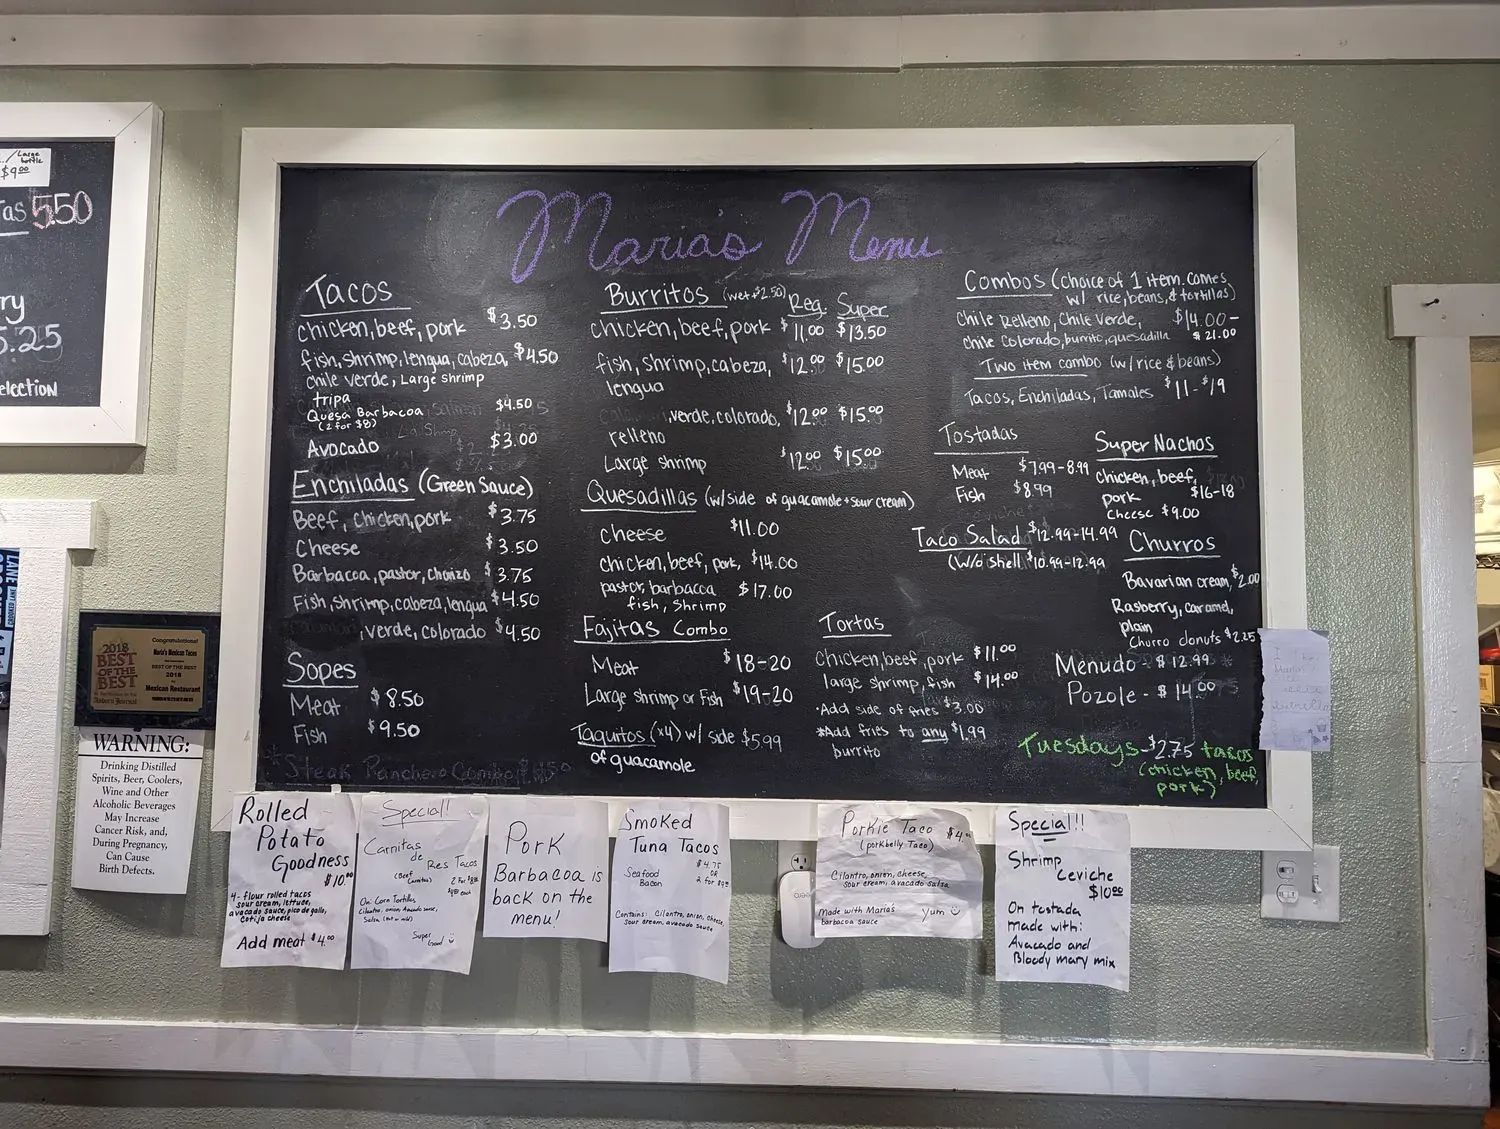 Large
bottle
$9.00
tas 5.50
ry
5.25
election
Maria's Menu
Tacos
chicken, beef, pork $3.50
fish, shrimp, lengua, cabeza, $4.50
chile verde, Large shrimp
tripa
Quesa Barbacoa $4.50
(2 for $8)
Avocado $3.00
Enchiladas (Green Sauce)
Beef, chicken, pork $3.75
Cheese $3.50
Barbacoa, pastor, chorizo $3.75
Fish, shrimp, cabeza, lengua $4.50
, verde, colorado $4.50
Sopes
Meat $8.50
Fish $9.50
*Steak Ranchero Combo
Burritos (wet+$2.50) Reg. Super
chicken, beef, pork $11.00 $13.50
fish, shrimp, cabeza, $12.00 $15.00
lengua
, verde, colorado, $12.00 $15.00
relleno
Large shrimp $12.00 $15.00
Quesadillas (w/side of guacamole + sour cream)
cheese $11.00
chicken, beef, pork, $14.00
pastor, barbacoa $17.00
fish, shrimp
Fajitas Combo
Meat $18-20
Large shrimp or Fish $19-20
Taquitos (x4) w/ side $5.99
of guacamole
Combos (choice of 1 item. comes
w/ rice, beans, & tortillas)
Chile Relleno, Chile Verde, $14.00-
chile Colorado, burrito, quesadilla $21.00
Two item combo (w/rice & beans)
Tacos, Enchiladas, Tamales $11-$19
Tostadas
Meat $7.99-8.99
Fish $8.99
Super Nachos
chicken, beef,
pork $16-18
Cheese $9.00
Taco Salad $12.99-14.99
(w/o shell $10.99-12.99
Churros
Bavarian cream, $2.00
Rasberry, caramel,
plain
Churro donuts $2.25
Tortas
Chicken, beef, pork $11.00
large shrimp, fish $14.00
•Add side of fries $3.00
*Add fries to any $1.99
burrito
Menudo - $12.99
Pozole - $14.00
Tuesdays - $2.75 tacos
(chicken, beef,
pork)
2018
BEST
OF THE
BEST
Congratulations!
Maria's Mexican Tacos
BEST OF THE BEST
2018
Mexican Restaurant
WARNING:
Drinking Distilled
Spirits, Beer, Coolers,
Wine and Other
Alcoholic Beverages
May Increase
Cancer Risk, and,
During Pregnancy,
Can Cause
Birth Defects.
Rolled
Potato
Goodness
$10.00
4- flour rolled tacos
sour cream, lettuce,
avocado sauce, pico de gallo,
cotija cheese
Add meat $4.00
Special!!
Carnitas
de
Res Tacos
(Beef
Carnitas)
On: Corn Tortillas
Cilantro, onion, Avocado sauce,
Salsa,
Super
Good
Pork
Barbacoa is
back on the
menu!
Smoked
Tuna Tacos
$4.75
or
Seafood
Bacon
Contains: Cilantro, onion, cheese,
sour cream, avocado sauce
Porkie Taco
(porkbelly Taco)
Cilantro, onion, cheese,
sour cream, avocado salsa
Made with Maria's
barbacoa sauce
Yum
Special!!!
Shrimp
Ceviche
$10.00
On tostada
made with:
Avocado and
Bloody mary mix